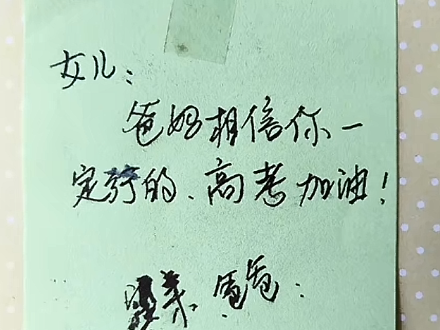 女儿：
爸妈相信你一
定行的、高考加油！
爸：